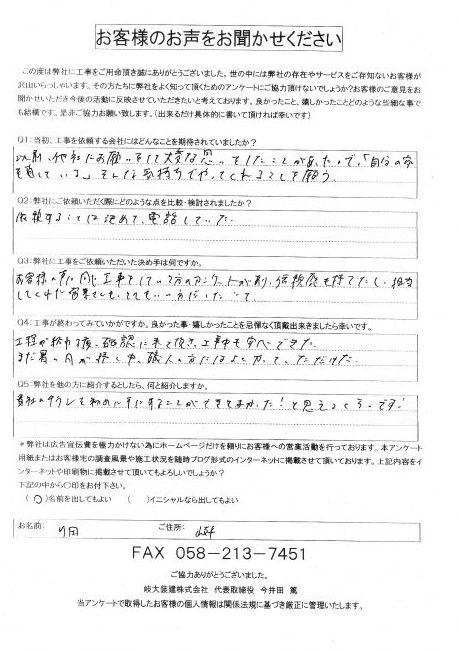 お客様のお声をお聞かせください
この度は弊社に工事をご用命頂き誠にありがとうございました。世の中には弊社の存在やサービスをご存知ないお客様が
沢山いらっしゃいます。その方たちに弊社をよく知って頂くためのアンケートにご協力頂けないでしょうか?お客様のご意見をお
聞かせいただき今後の活動に反映させていただきたいと考えております。良かったこと、嬉しかったことどのような些細な事で
も結構です。是非ご協力お願い致します。(出来るだけ具体的に書いて頂ければ幸いです)
Q1:当初、工事を依頼する会社にはどんなことを期待されていましたか?
以前、他社にお願いをして大変な思いをしたことがあったので、「自分の家
を直している」そんな気持ちでやってくれることを願う。
Q2:弊社にご依頼いただく際にどのような点を比較・検討されましたか?
依頼することは決めて、電話していた。
Q3:弊社に工事をご依頼いただいた決め手は何ですか。
お客様の声に同じ工事をしている方のアンケートがあり、信頼感を持てたし、担当
してくれた営業さんも、とてもいい方だったこと
Q4:工事が終わってみていかがですか。良かった事・嬉しかったことを忌憚なく頂戴出来きましたら幸いです。
工程が終わる度、確認に来て頂き、工事中も安心できた。
まだ暑い日が続く中、職人の方にはよくやっていただけた。
Q5:弊社を他の方に紹介するとしたら、何と紹介しますか。
*弊社は広告宣伝費を極力かけない為にホームページだけを頼りにお客様への営業活動を行っております。本アンケート
用紙またはお客様宅の調査風景や施工状況を随時ブログ形式のインターネットに掲載させて頂いております。上記内容をイ
ンターネットや印刷物に掲載させて頂いてもよろしいでしょうか?
下記の中から○印をお付下さい。
(○)名前を出してもよい ( )イニシャルなら出してもよい
お名前: ご住所:
FAX 058-213-7451
ご協力ありがとうございました。
岐大装建株式会社 代表取締役 今井田 篤
当アンケートで取得したお客様の個人情報は関係法規に基づき厳正に管理いたします。